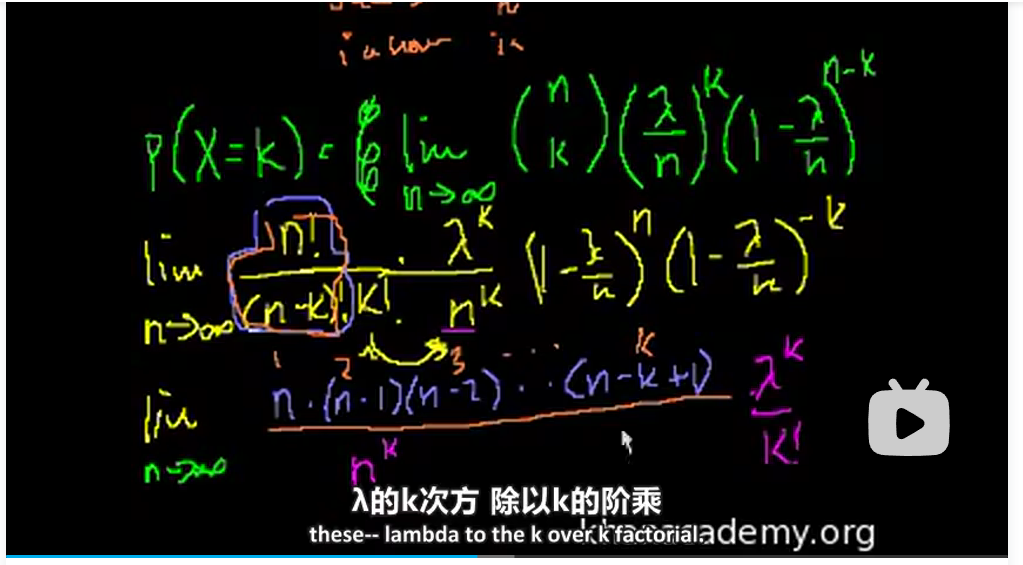 P(X=k) = lim n→∞ (n k) (λ/n)^k (1 - λ/n)^n-k
lim n→∞ n!/(n-k)! k! · λ^k/n^k (1 - λ/n)^n (1 - λ/n)^-k
1 2 3 ... k
lim n→∞ n·(n-1)(n-2)···(n-k+1)/n^k λ^k/k!
λ的k次方 除以k的阶乘
these-- lambda to the k over k factorial.
khanacademy.org